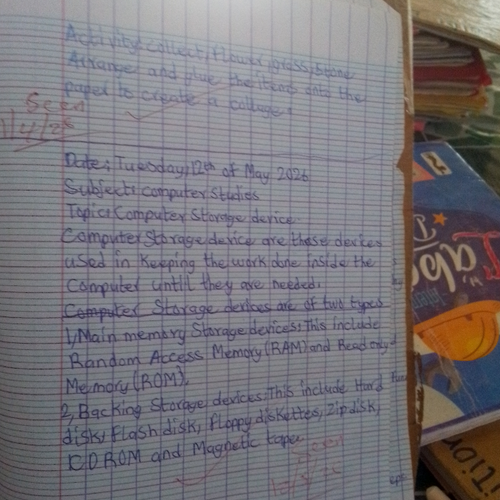 Activity: collect, flower, grass, stone
Arrange and glue the items onto the
paper to create a collage.
Seen
Date: Tuesday, 12th of May 2026
Subject: Computer Studies
Topic: Computer Storage device.
Computer Storage device are those devices
used in keeping the work done inside the
Computer until they are needed.
Computer Storage devices are of two types
1, Main memory Storage devices: This include
Random Access Memory (RAM) and Read only
Memory (ROM).
2, Backing Storage devices: This include Hard
disk, Flash disk, Floppy diskettes, Zip disk,
CD ROM and Magnetic tape
Seen
2